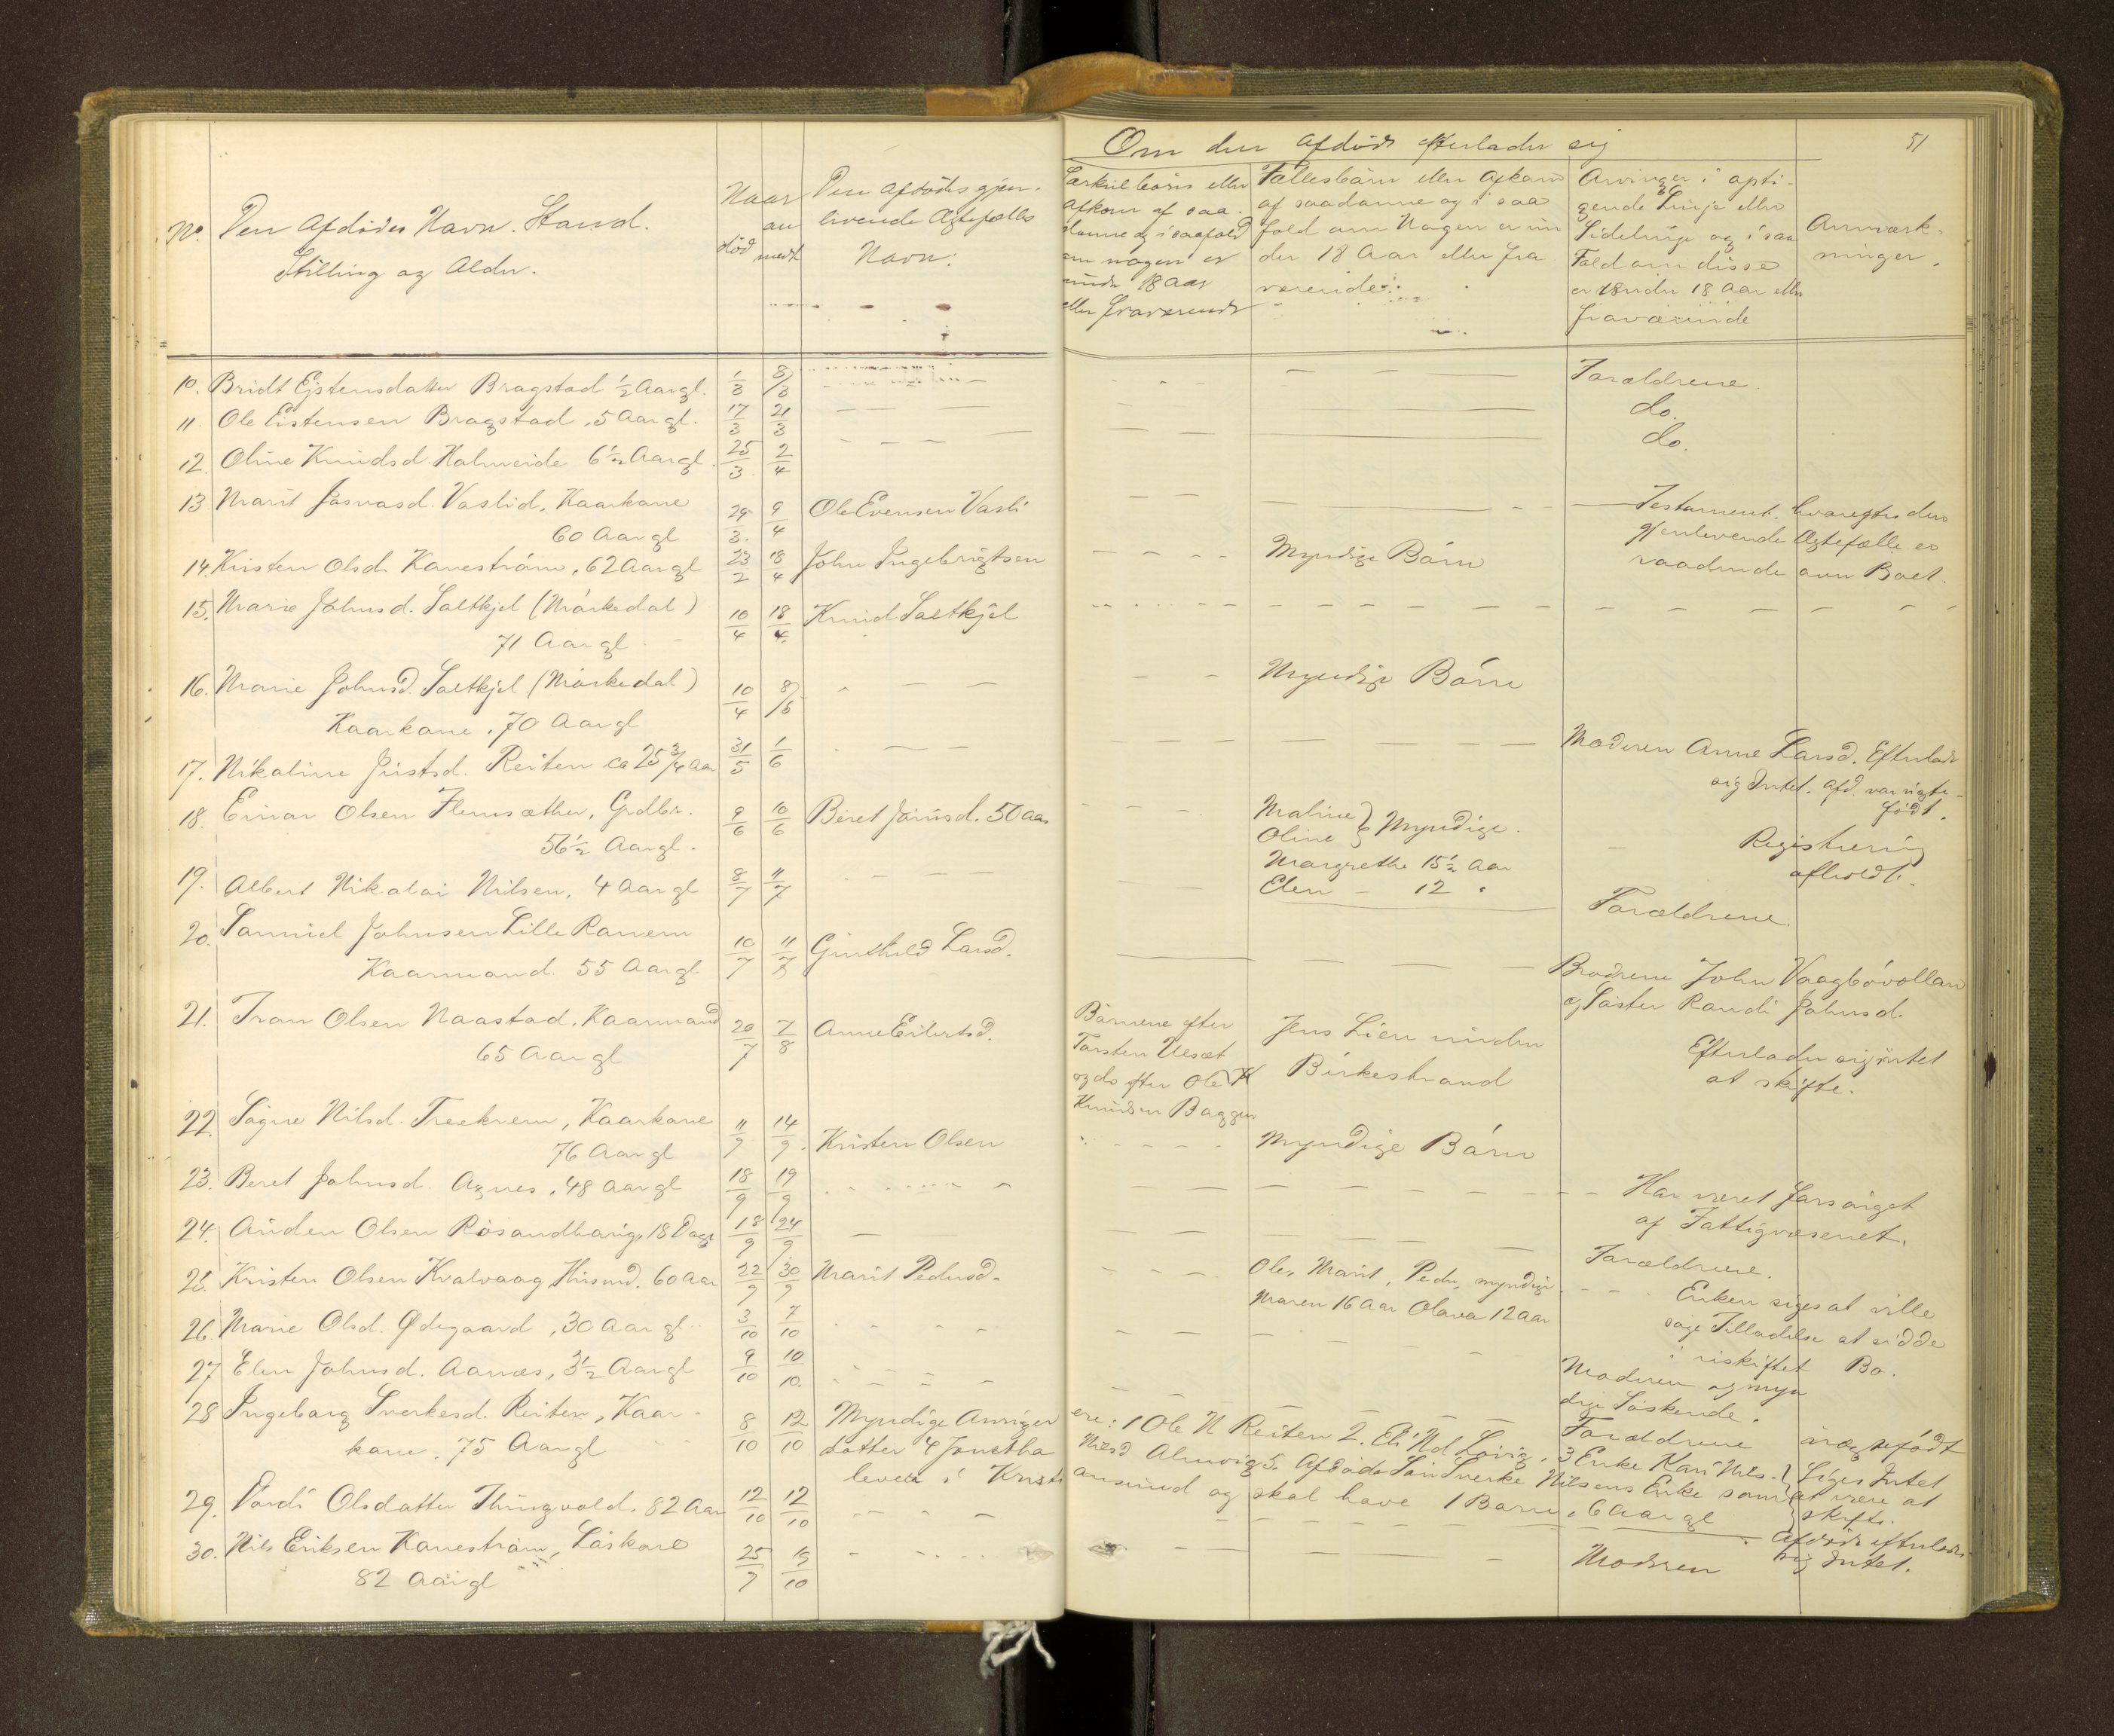 Om den Afdøde efterlader sig
51
No.
Den Afdødes Navn. Stand.
Stilling og Alder.
Naar
død
an
meldt
Den Afdødes gjen-
levende Ægtefælles
Navn:
Særkulbørn eller
Afkom af saa-
danne og i saafald
om nogen er
under 18 Aar
eller fraværende
Fællesbørn eller Afkom
af saadanne og i saa
fald om Nogen er un
der 18 Aar eller fra
værende:
Arvinger i opsti-
gende Linje eller
Sidelinje og i saa
Fald om disse
er under 18 Aar eller
fraværende
Anmærk-
ninger.
10. Bridt Ejstensdatter Bragstad ½ Aar gl. 1/3 8/3 Forældrene.
11. Ole Eistensen Bragstad, 5 Aar gl. 17/3 21/3 do.
12. Oline Knudsd. Halmeide 6½ Aar gl. 25/3 2/4 do.
13 Marit Jonasd. Vaslid, Kaarkone
60 Aar gl 29/3 9/4 Ole Evensen Vasli
Testament. hvorefter den
gjenlevende Ægtefælle er
raadende over Boet.
14. Kristen Olsd. Kanestrøm, 62 Aar gl 23/2 18/4 John Ingebrigtsen Myndige Børn
15. Marie Johnsd. Saltkjel (Mørkedal)
71 Aar gl 10/4 18/4 Knud Saltkjel
16. Marie Johnsd. Saltkjel (Mørkedal)
Kaarkone, 70 Aar gl 10/4 8/5 Myndige Børn
17. Nikoline Justsd. Reiten ca 25 ¾ Aar 31/5 1/6 Moderen Anne Larsd. Efterlader
sig Intet. Afd. var uægte-
født.
18. Einar Olsen Flemsæther, Grdbr.
56½ Aar gl. 9/6 10/6 Beret Jonsd. 50 Aar
Maline } Myndige.
Oline
Margrethe 15½ Aar
Elen – 12 "
Registrering
afholdt.
19. Albert Nikolai Nilsen, 4 Aar gl 8/7 11/7 Forældrene.
20. Samuel Johnsen Lille Ranem
Kaarmand. 55 Aar gl 10/7 11/7 Gunhild Larsd.
Brødrene John Vaagbøvollan
og Søster Randi Johnsd.
21. Tron Olsen Naastad, Kaarmand
65 Aar gl 20/7 7/8 Anne Eilertsd.
Børnene efter
Torsten Ulsæt
og do efter Ole
Knudsen Baggen
Jens Lien under
Birkestrand
Efterlader sig intet
at skifte.
22. Signe Nilsd. Treekrem, Kaarkone
76 Aar gl 11/9 14/9. Kristen Olsen Myndige Børn
23. Beret Johnsd. Agnes, 48 Aar gl 18/9 19/9 Har været forsørget
af Fattigvæsenet.
24. Anden Olsen Røsandhaug, 18 Dage 18/9 24/9 Forældrene.
25. Kristen Olsen Kvalvaag Husmd. 60 Aar 22/9 30/9 Marit Pedersd.
Ole, Marit, Peder, myndige
Maren 16 Aar Olava 12 Aar
Enken siges at ville
søge Tilladelse at sidde
i uskiftet Bo.
26. Marie Olsd. Ødegaard, 30 Aar gl. 3/10 7/10 Moderen og myn
dige Søskende.
27 Elen Johnsd. Aanæs, 3½ Aar gl 9/10 10/10. Forældrene uægtefødt
28 Ingeborg Sverkesd. Reiten, Kaar-
kone, 75 Aar gl 8/10 12/10
Myndige Arvinger ere: 1 Ole N Reiten 2. Eli Nd Løvig, 3 Enke Kari Nils-
datter 4 Jonetha Nilsd Almvig 5. Afdøde Søn Sverke Nilsens Enke som
lever i Kristiansund og skal have 1 Barn, 6 Aar gl
Siges Intet
at være at
skifte.
29. Dordi Olsdatter Thingvold, 82 Aar 12/10 12/10 Afdøde efterlader
sig Intet.
30. Nils Eriksen Kanestrøm, Løskone
82 Aar gl 25/9 19/10 Moderen